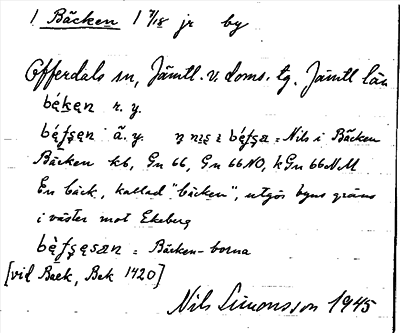 1 Bäcken 1 7/18 jr by
Offerdals sn, Jämtl. v. doms. tg. Jämtl län
bę́kęn n. y.
bę́fşęn ä. y. nıs i bę́fşa = Nils i Bäcken
Bäcken kb, Gn 66, Gn 66 NO, kGn 66 NM
En bäck, kallad "bäcken", utgör byns gräns
i väster mot Ekeberg
bę̀fşęsan = Bäcken-borna
[vid Baek, Bek 1420]
Nils Simonsson 1945